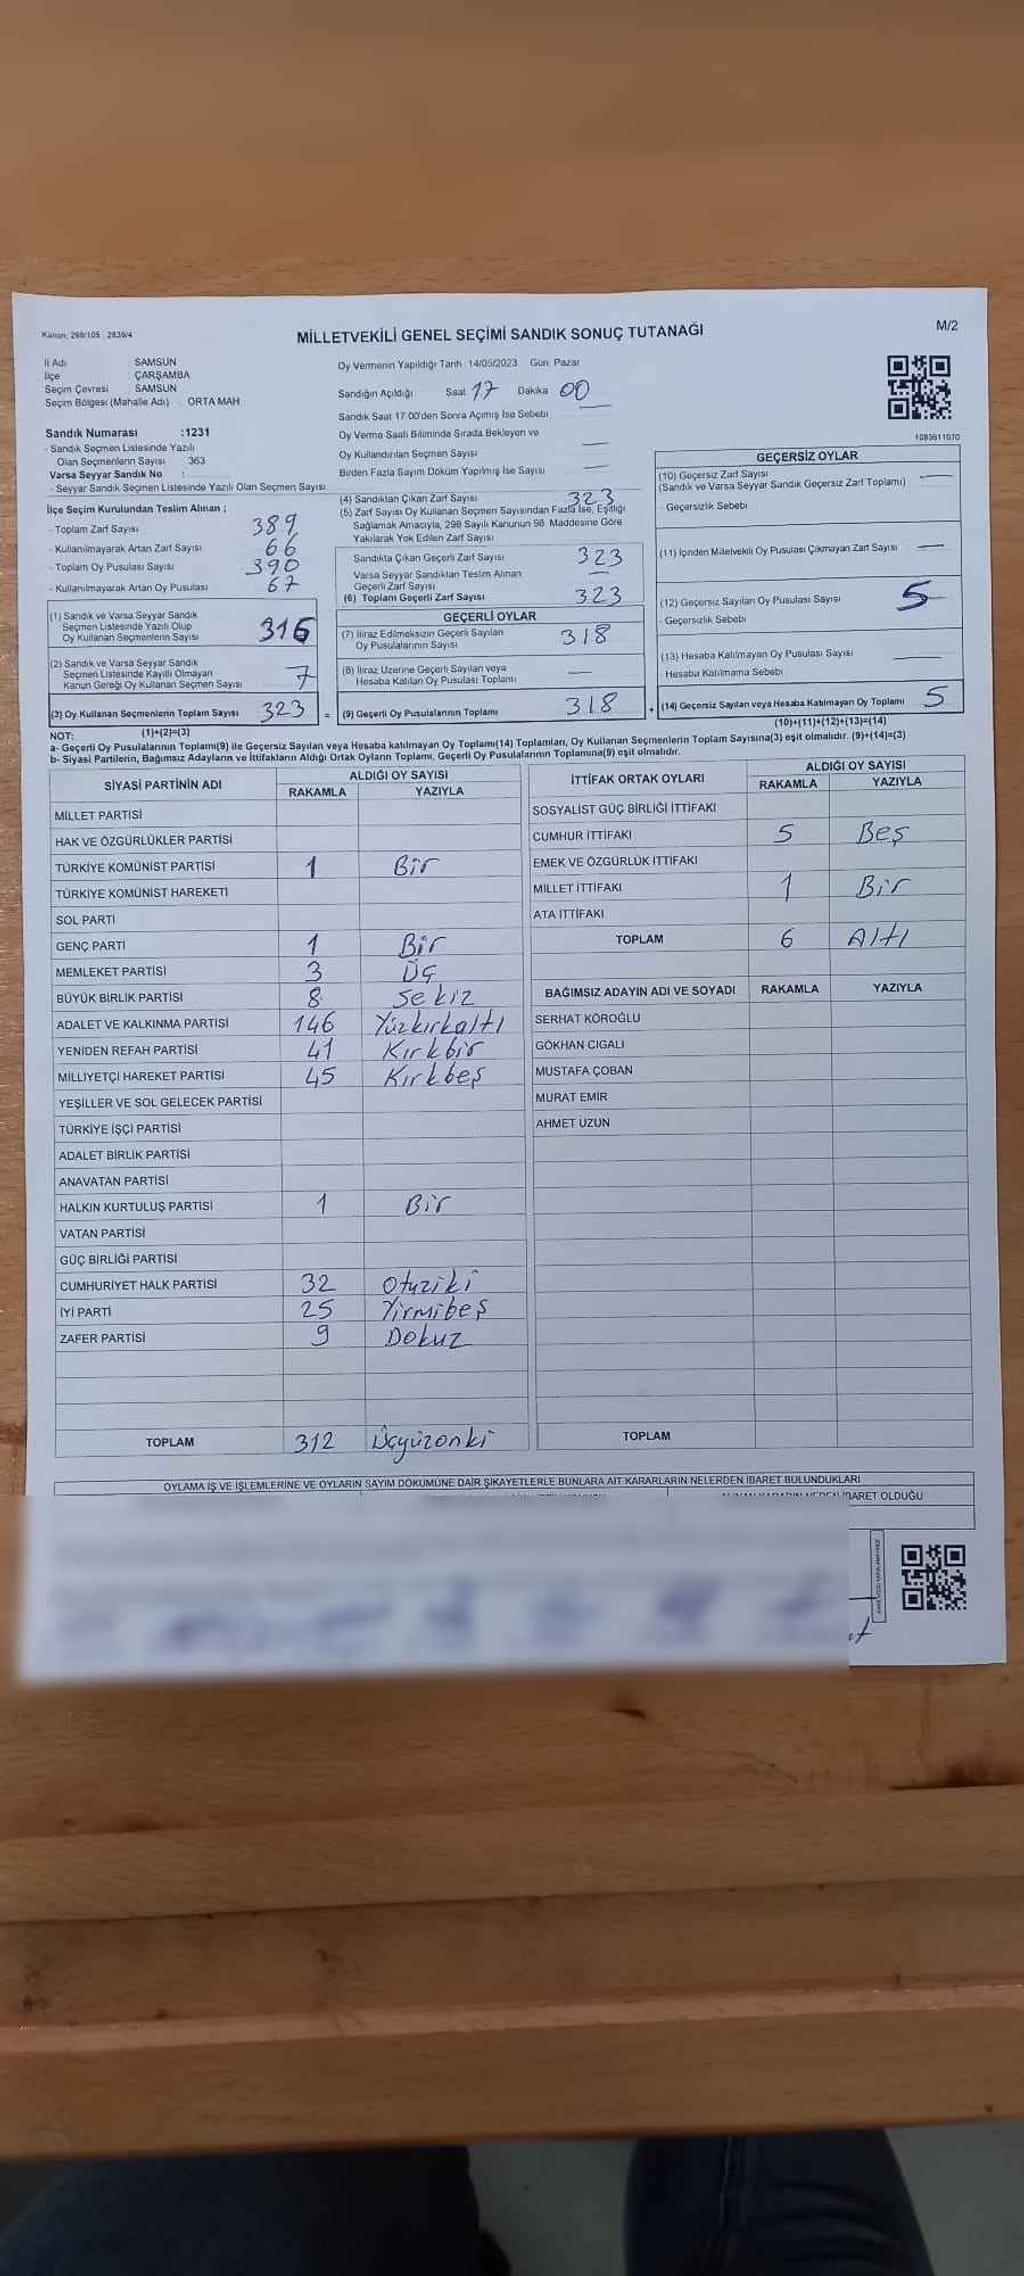 Kanun: 298/105 2839/4
MİLLETVEKİLİ GENEL SEÇİMİ SANDIK SONUÇ TUTANAĞI
M/2
İl Adı SAMSUN
İlçe ÇARŞAMBA
Seçim Çevresi SAMSUN
Seçim Bölgesi (Mahalle Adı) ORTA MAH
Sandık Numarası :1231
- Sandık Seçmen Listesinde Yazılı
Olan Seçmenlerin Sayısı 363
Varsa Seyyar Sandık No :
- Seyyar Sandık Seçmen Listesinde Yazılı Olan Seçmen Sayısı
Oy Vermenin Yapıldığı Tarih 14/05/2023 Gün: Pazar
Sandığın Açıldığı Saat 17 Dakika 00
Sandık Saat 17:00'den Sonra Açımış İse Sebebi —
Oy Verme Saati Bitiminde Sırada Bekleyen ve
Oy Kullandırılan Seçmen Sayısı —
Birden Fazla Sayım Döküm Yapılmış İse Sayısı —
1083611070
İlçe Seçim Kurulundan Teslim Alınan ;
- Toplam Zarf Sayısı 389
- Kullanılmayarak Artan Zarf Sayısı 66
- Toplam Oy Pusulası Sayısı 390
- Kullanılmayarak Artan Oy Pusulası 67
(1) Sandık ve Varsa Seyyar Sandık
Seçmen Listesinde Yazılı Olup
Oy Kullanan Seçmenlerin Sayısı 316
(2) Sandık ve Varsa Seyyar Sandık
Seçmen Listesinde Kayıtlı Olmayan
Kanun Gereği Oy Kullanan Seçmen Sayısı 7
(3) Oy Kullanan Seçmenlerin Toplam Sayısı 323 =
(4) Sandıktan Çıkan Zarf Sayısı 323
(5) Zarf Sayısı Oy Kullanan Seçmen Sayısından Fazla İse, Eşitliği
Sağlamak Amacıyla, 298 Sayılı Kanunun 98. Maddesine Göre
Yakılarak Yok Edilen Zarf Sayısı
Sandıkta Çıkan Geçerli Zarf Sayısı 323
Varsa Seyyar Sandıktan Teslim Alınan
Geçerli Zarf Sayısı —
(6) Toplam Geçerli Zarf Sayısı 323
GEÇERLİ OYLAR
(7) İtiraz Edilmeksizin Geçerli Sayılan
Oy Pusulalarının Sayısı 318
(8) İtiraz Üzerine Geçerli Sayılan veya
Hesaba Katılan Oy Pusulası Toplamı —
(9) Geçerli Oy Pusulalarının Toplamı 318 +
GEÇERSİZ OYLAR
(10) Geçersiz Zarf Sayısı —
(Sandık ve Varsa Seyyar Sandık Geçersiz Zarf Toplamı)
- Geçersizlik Sebebi
(11) İçinden Milletvekili Oy Pusulası Çıkmayan Zarf Sayısı —
(12) Geçersiz Sayılan Oy Pusulası Sayısı 5
- Geçersizlik Sebebi
(13) Hesaba Katılmayan Oy Pusulası Sayısı —
Hesaba Katılmama Sebebi
(14) Geçersiz Sayılan veya Hesaba Katılmayan Oy Toplamı 5
NOT: (1)+(2)=(3) (10)+(11)+(12)+(13)=(14)
a- Geçerli Oy Pusulalarının Toplamı(9) ile Geçersiz Sayılan veya Hesaba katılmayan Oy Toplamı(14) Toplamları, Oy Kullanan Seçmenlerin Toplam Sayısına(3) eşit olmalıdır. (9)+(14)=(3)
b- Siyasi Partilerin, Bağımsız Adayların ve İttifakların Aldığı Ortak Oyların Toplamı, Geçerli Oy Pusulalarının Toplamına(9) eşit olmalıdır.
SİYASİ PARTİNİN ADI ALDIĞI OY SAYISI
RAKAMLA YAZIYLA
MİLLET PARTİSİ
HAK VE ÖZGÜRLÜKLER PARTİSİ
TÜRKİYE KOMÜNİST PARTİSİ 1 Bir
TÜRKİYE KOMÜNİST HAREKETİ
SOL PARTİ
GENÇ PARTİ 1 Bir
MEMLEKET PARTİSİ 3 Üç
BÜYÜK BİRLİK PARTİSİ 8 Sekiz
ADALET VE KALKINMA PARTİSİ 146 Yüzkırkaltı
YENİDEN REFAH PARTİSİ 41 Kırkbir
MİLLİYETÇİ HAREKET PARTİSİ 45 Kırkbeş
YEŞİLLER VE SOL GELECEK PARTİSİ
TÜRKİYE İŞÇİ PARTİSİ
ADALET BİRLİK PARTİSİ
ANAVATAN PARTİSİ
HALKIN KURTULUŞ PARTİSİ 1 Bir
VATAN PARTİSİ
GÜÇ BİRLİĞİ PARTİSİ
CUMHURİYET HALK PARTİSİ 32 Otuziki
İYİ PARTİ 25 Yirmibeş
ZAFER PARTİSİ 9 Dokuz
TOPLAM 312 Üçyüzoniki
İTTİFAK ORTAK OYLARI ALDIĞI OY SAYISI
RAKAMLA YAZIYLA
SOSYALİST GÜÇ BİRLİĞİ İTTİFAKI
CUMHUR İTTİFAKI 5 Beş
EMEK VE ÖZGÜRLÜK İTTİFAKI
MİLLET İTTİFAKI 1 Bir
ATA İTTİFAKI
TOPLAM 6 Altı
BAĞIMSIZ ADAYIN ADI VE SOYADI RAKAMLA YAZIYLA
SERHAT KÖROĞLU
GÖKHAN CIGALI
MUSTAFA ÇOBAN
MURAT EMİR
AHMET UZUN
TOPLAM
OYLAMA İŞ VE İŞLEMLERİNE VE OYLARIN SAYIM DÖKÜMÜNE DAİR ŞİKAYETLERLE BUNLARA AİT KARARLARIN NELERDEN İBARET BULUNDUKLARI
İBARET OLDUĞU